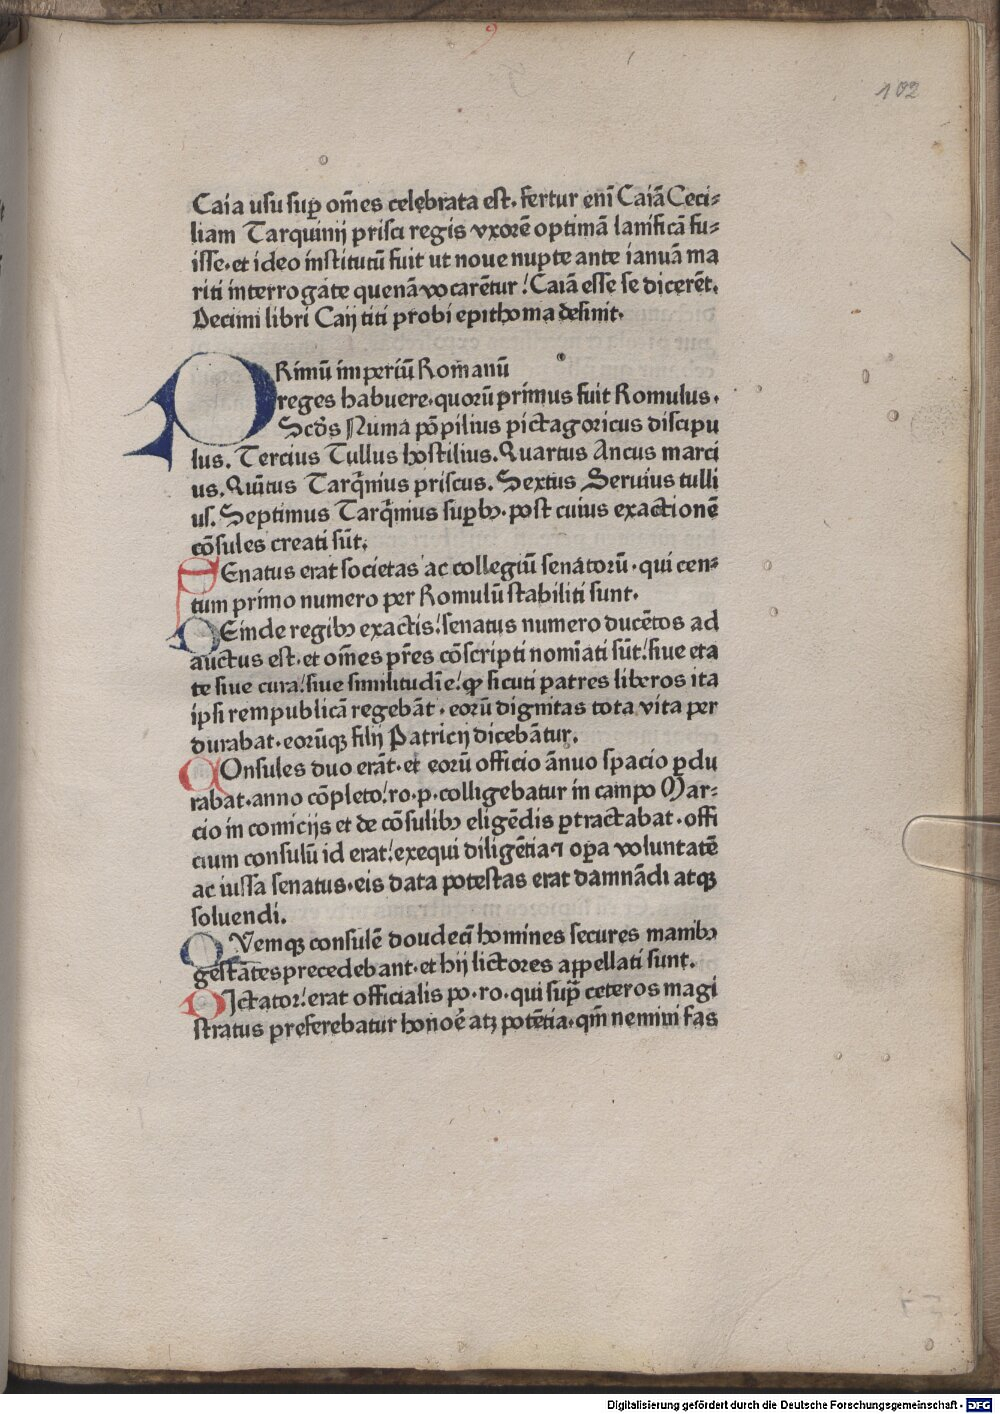 102
Caia usu sup̲ om̄es celebrata est. fertur enī Caiā Ceci⸗
liam Tarquinij prisci regis vxorē optimā lanificā fu⸗
isse. et ideo institutū fuit ut noue nupte ante ianuā ma
riti interrogate quenā vocarētur! Caiā esse se dicerēt.
Decimi libri Caij titi probi epithoma definit.
PRimū imperiū Romanū
reges habuere. quorū primus fuit Romulus.
Scd̄s Numa pōpilius pictagoricus discipu
lus. Tercius Tullus hostilius. Quartus Ancus marci
us. Quītus Tarq̄nius priscus. Sextus Seruius tulli
us. Septimus Tarq̄nius sup̲bꝰ. post cuius exactionē
cōsules creati sūt.
SEnatus erat societas ac collegiū senatorū. qui cen⸗
tum primo numero per Romulū stabiliti sunt.
DEinde regibꝫ exactis! senatus numero ducētos ad
auctus est. et om̄es pr̄es cōscripti nomīati sūt! siue eta
te siue cura! siue similitudīe! qꝫ sicuti patres liberos ita
ipsi rempublicā regebāt. eorū dignitas tota vita per
durabat. eorūqꝫ filij Patricij dicebātur.
COnsules duo erāt. et eorū officio ānuo spacio ꝑdu
rabat. anno cōpleto! ro. p. colligebatur in campo Mar⸗
cio in comicijs et de cōsulibꝫ eligēdis ꝑtractabat. offi
cium consulū id erat! exequi diligētia ⁊ oꝑa voluntatē
ac iussa senatus. eis data potestas erat damnādi atqꝫ
soluendi.
QVemqꝫ consulē doudecī homines secures manibꝫ
gestātes precedebant. et hij lictores appellati sunt.
DIctator! erat officialis po. ro. qui sup̄ ceteros magi
stratus preferebatur honoē atꝫ potētia. qm̄ nemini fas
Digitalisierung gefördert durch die Deutsche Forschungsgemeinschaft - DFG